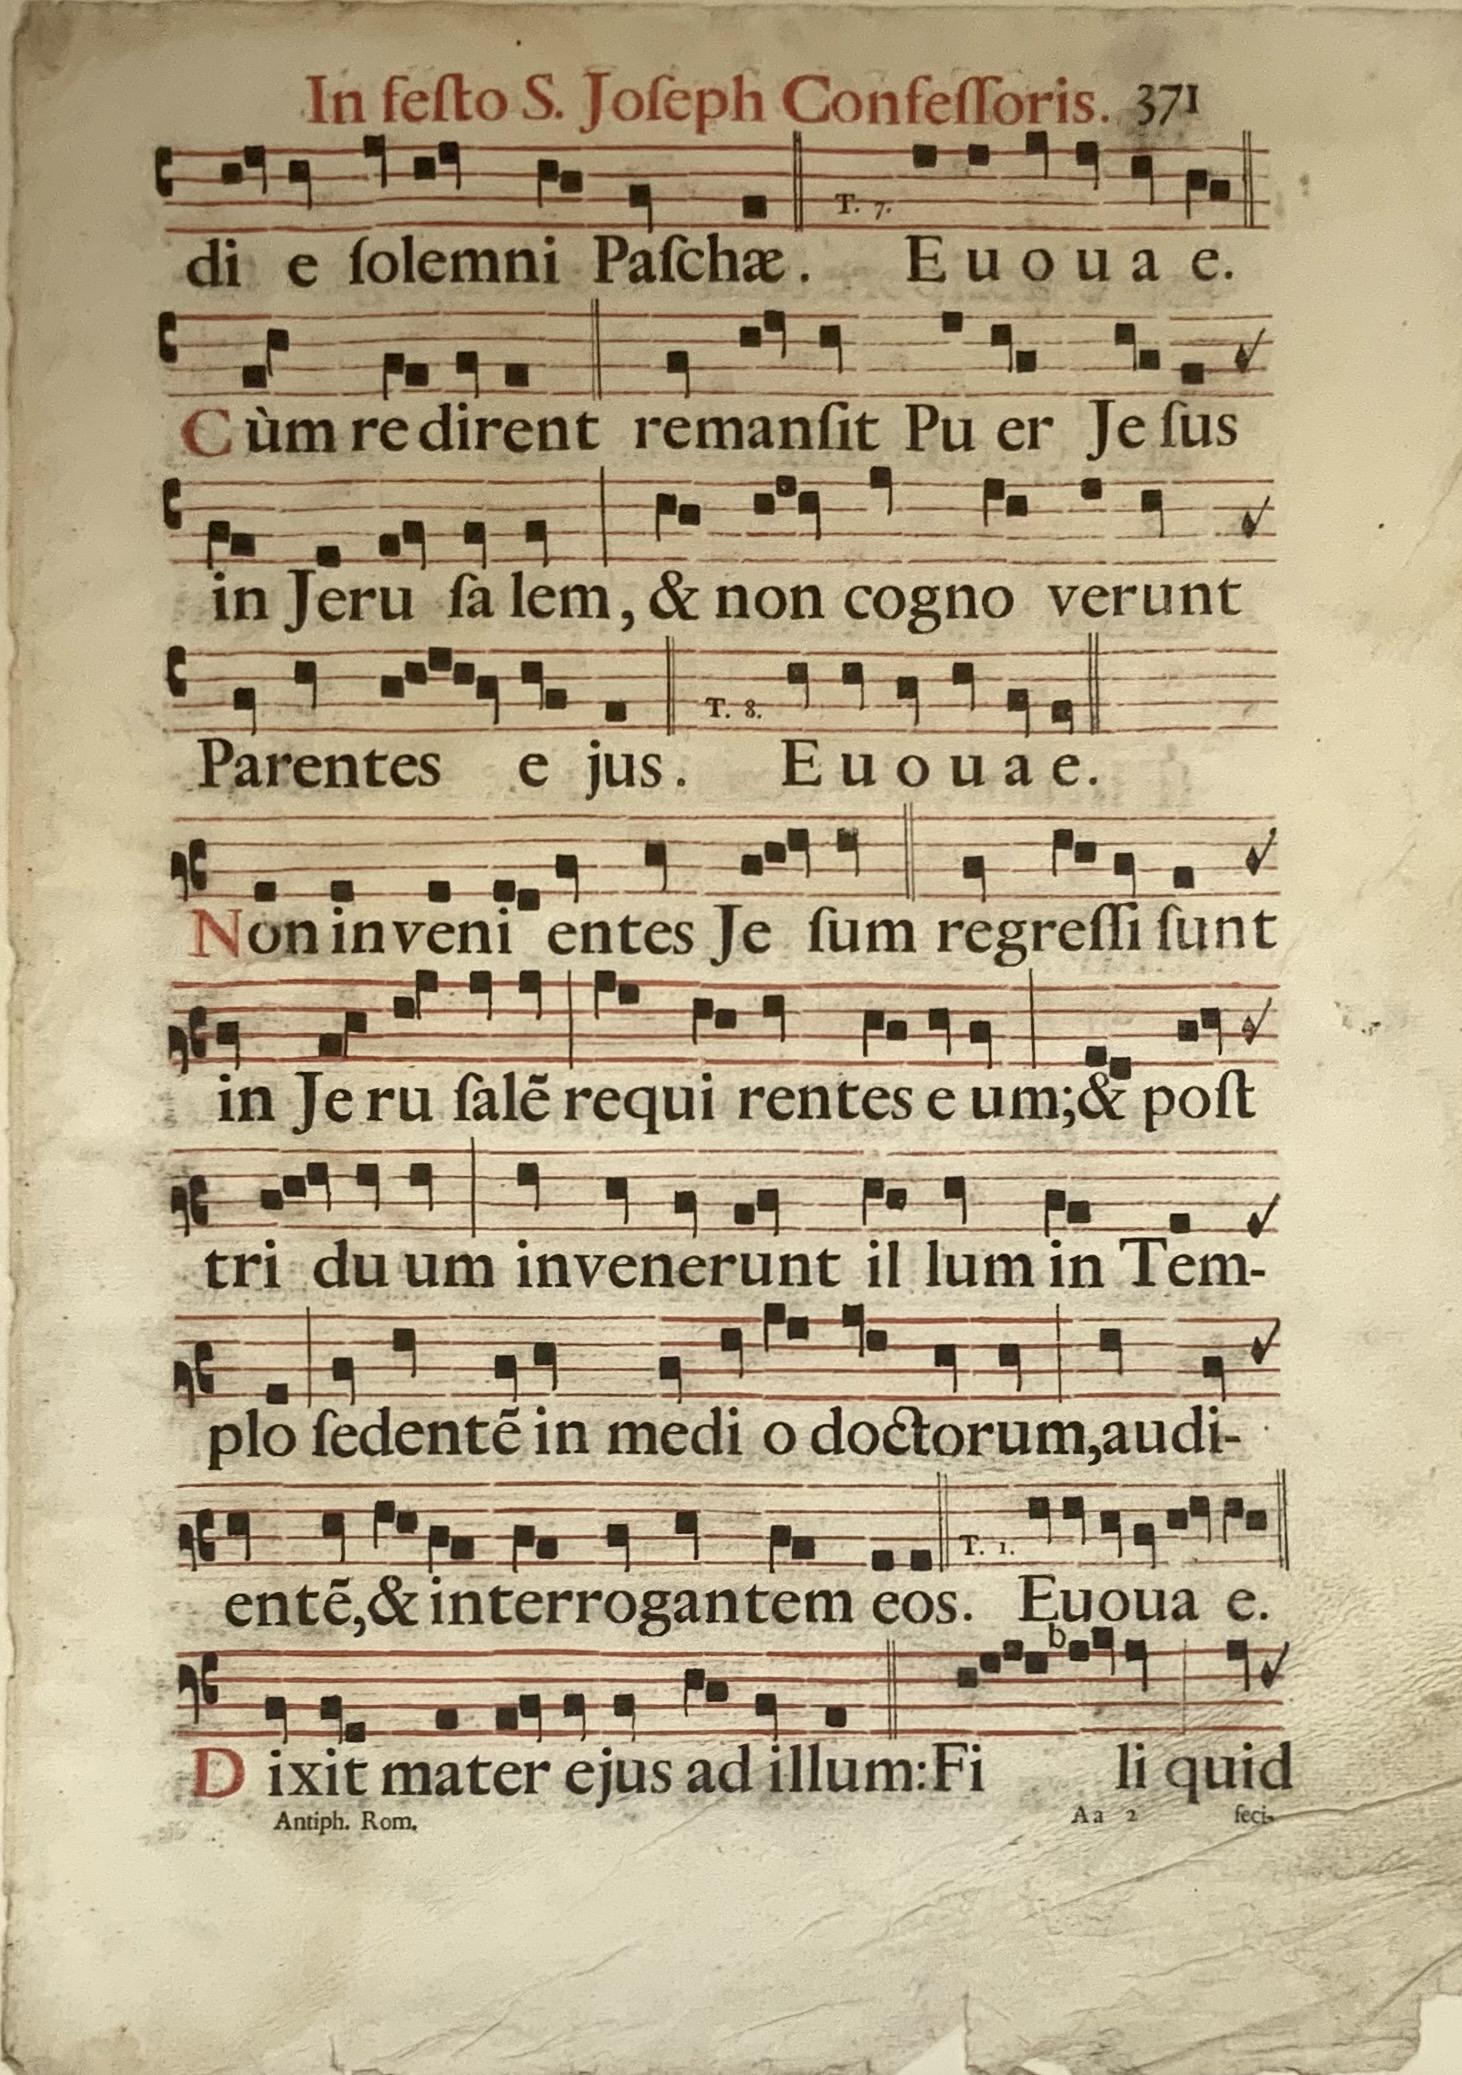 In feſto S. Joſeph Confeſſoris. 371
T. 7.
di e ſolemni Paſchæ. E u o u a e.
Cùm re dirent remanſit Pu er Je ſus
in Jeru ſa lem, & non cogno verunt
T. 8.
Parentes e jus. E u o u a e.
Non in veni entes Je ſum regreſſi ſunt
in Je ru ſalẽ requi rentes e um; & poſt
tri du um invenerunt il lum in Tem-
plo ſedentẽ in medi o doctorum, audi-
T. 1.
entẽ, & interrogantem eos. Euoua e.
b
Dixit mater ejus ad illum: Fi li quid
Antiph. Rom. Aa 2 feci-